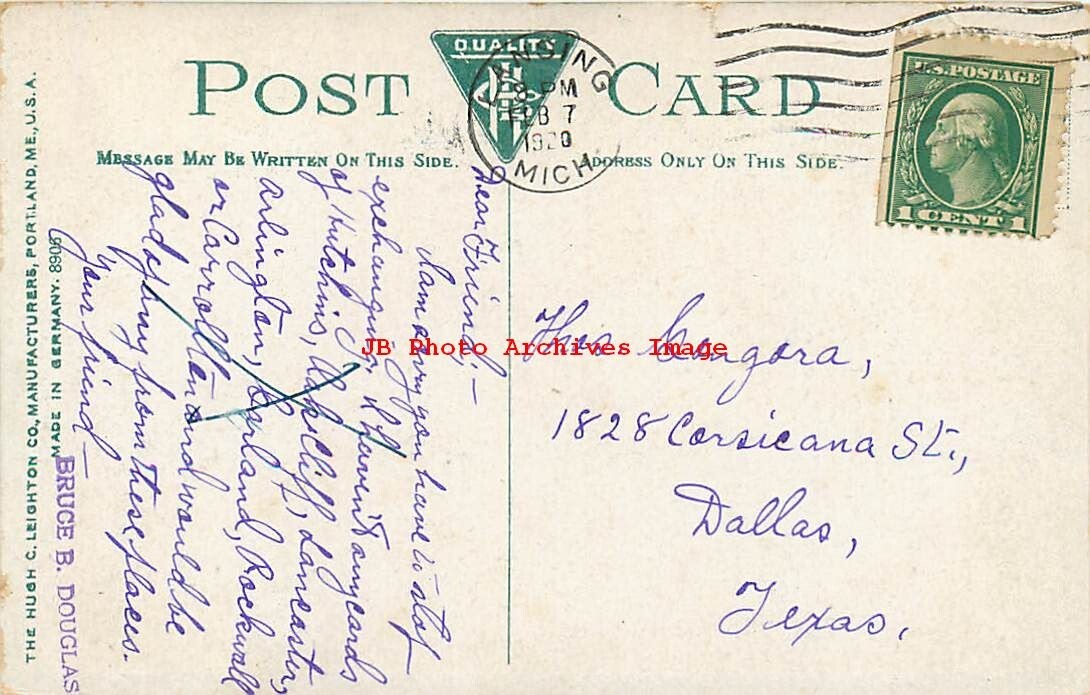 POST CARD
QUALITY
LANSING
8 PM
FEB 7
1920
MICH.
U.S. POSTAGE
1 CENT 1
MESSAGE MAY BE WRITTEN ON THIS SIDE.
ADDRESS ONLY ON THIS SIDE.
Dear Friend,—
I am sorry you have to stop
exchanging. I haven't any cards
of Hutchins, Oakcliff, Lancaster,
Arlington, Garland, Rockwall
or Carrollton and would be
glad of any from these places.
Your friend—
BRUCE B. DOUGLAS
Gongora,
1828 Corsicana St.,
Dallas,
Texas.
THE HUGH C. LEIGHTON CO., MANUFACTURERS, PORTLAND, ME., U.S.A.
MADE IN GERMANY. 8906
JB Photo Archives Image